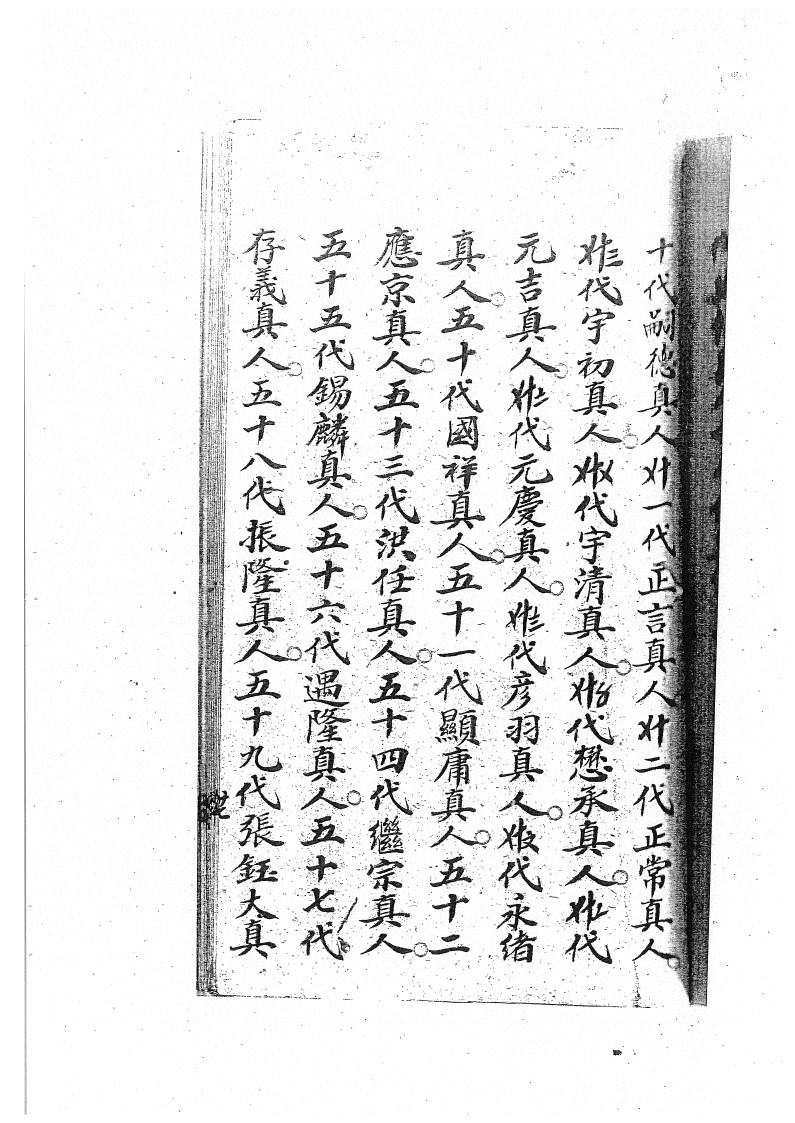 十代嗣德真人卌一代正言真人卌二代正常真人
卌三代宇初真人卌〤代宇清真人卌〥代懋承真人卌〦代
元吉真人卌〧代元慶真人卌〨代彦羽真人卌〩代永绪
真人五十代國祥真人五十一代顯庸真人五十二
應京真人五十三代洪任真人五十四代繼宗真人
五十五代錫麟真人五十六代遇隆真人五十七代
存義真人五十八代振隆真人五十九代張鈺大真